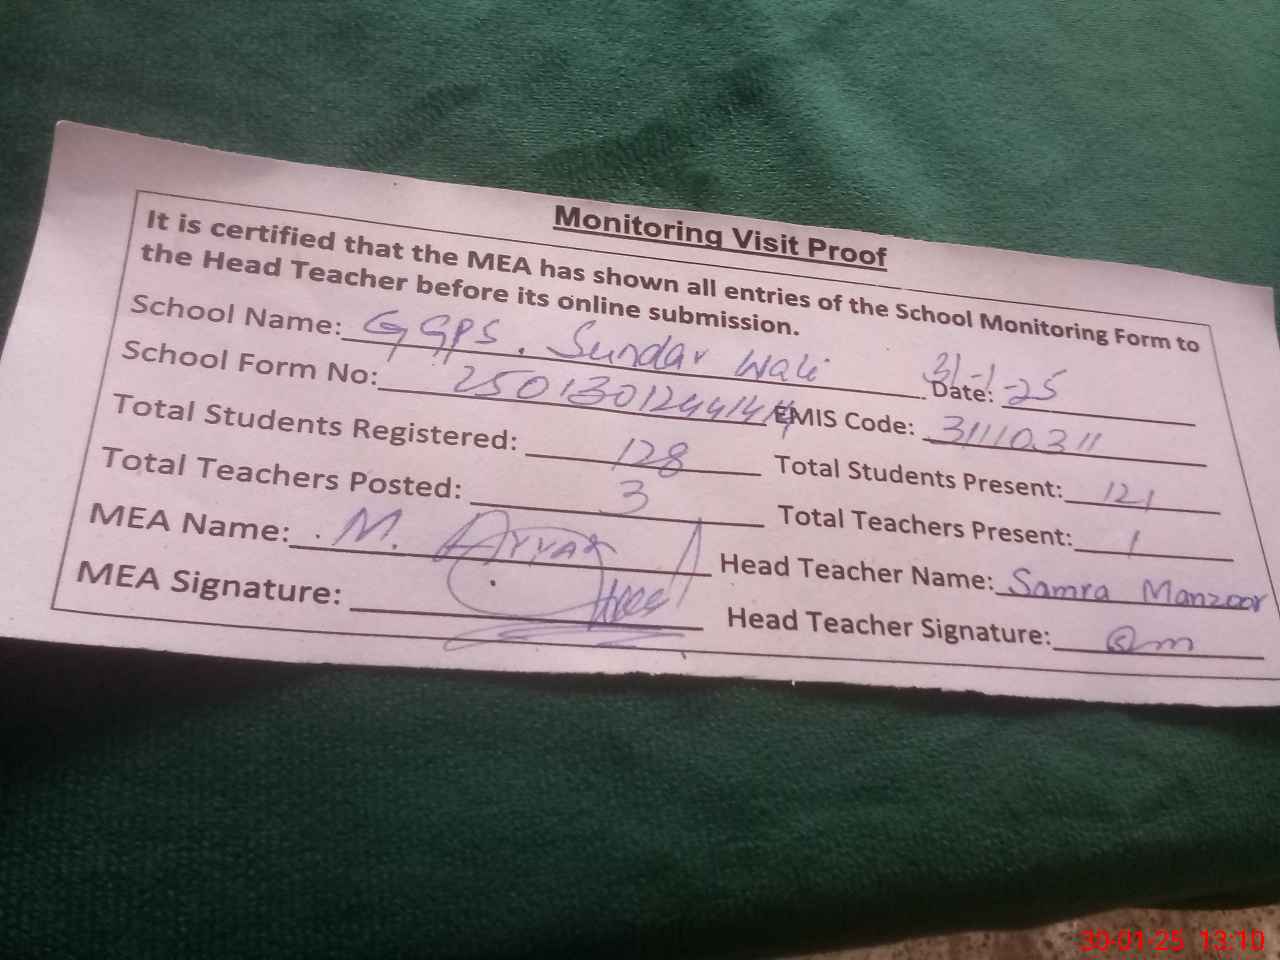 Monitoring Visit Proof
It is certified that the MEA has shown all entries of the School Monitoring Form to
the Head Teacher before its online submission.
School Name: GGPS. Sundar Wali Date: 31-1-25
School Form No: EMIS Code: 31110311
Total Students Registered: 128 Total Students Present: 121
Total Teachers Posted: 3 Total Teachers Present: 1
MEA Name: M. Head Teacher Name: Samra Manzoor
MEA Signature: Head Teacher Signature:
30-01-25 13:10